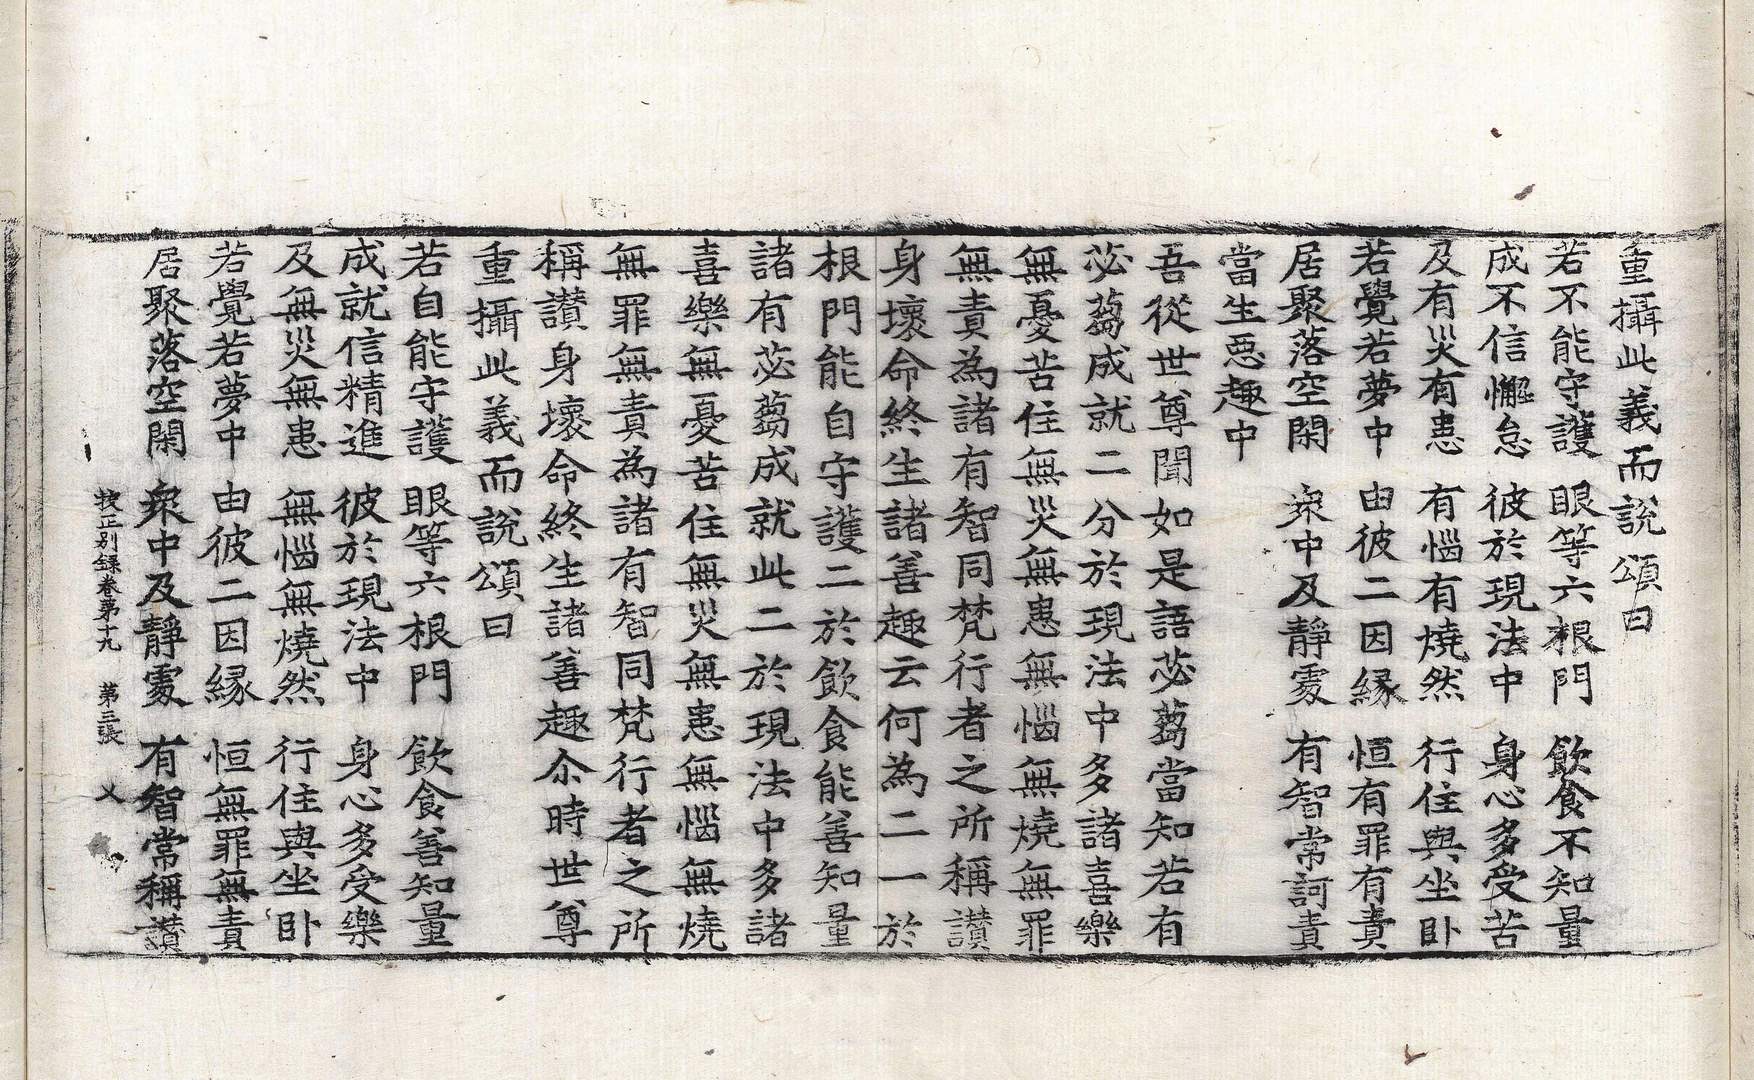 重攝此義而說頌曰
若不能守護 眼等六根門 飲食不知量
成不信懈怠 彼於現法中 身心多受苦
及有災有患 有惱有燒然 行住與坐卧
若覺若夢中 由彼二因緣 恒有罪有責
居聚落空閑 衆中及靜處 有智常訶責
當生惡趣中
吾從世尊聞如是語苾蒭當知若有
苾蒭成就二分於現法中多諸喜樂
無憂苦住無災無患無惱無燒無罪
無責為諸有智同梵行者之所稱讃
身壞命終生諸善趣云何為二一於
根門能自守護二於飲食能善知量
諸有苾蒭成就此二於現法中多諸
喜樂無憂苦住無災無患無惱無燒
無罪無責為諸有智同梵行者之所
稱讃身壞命終生諸善趣尒時世尊
重攝此義而說頌曰
若自能守護 眼等六根門 飲食善知量
成就信精進 彼於現法中 身心多受樂
及無災無患 無惱無燒然 行住與坐卧
若覺若夢中 由彼二因緣 恒無罪無責
居聚落空閑 衆中及靜處 有智常稱讃
挍正別録卷第十九 第三張 乂